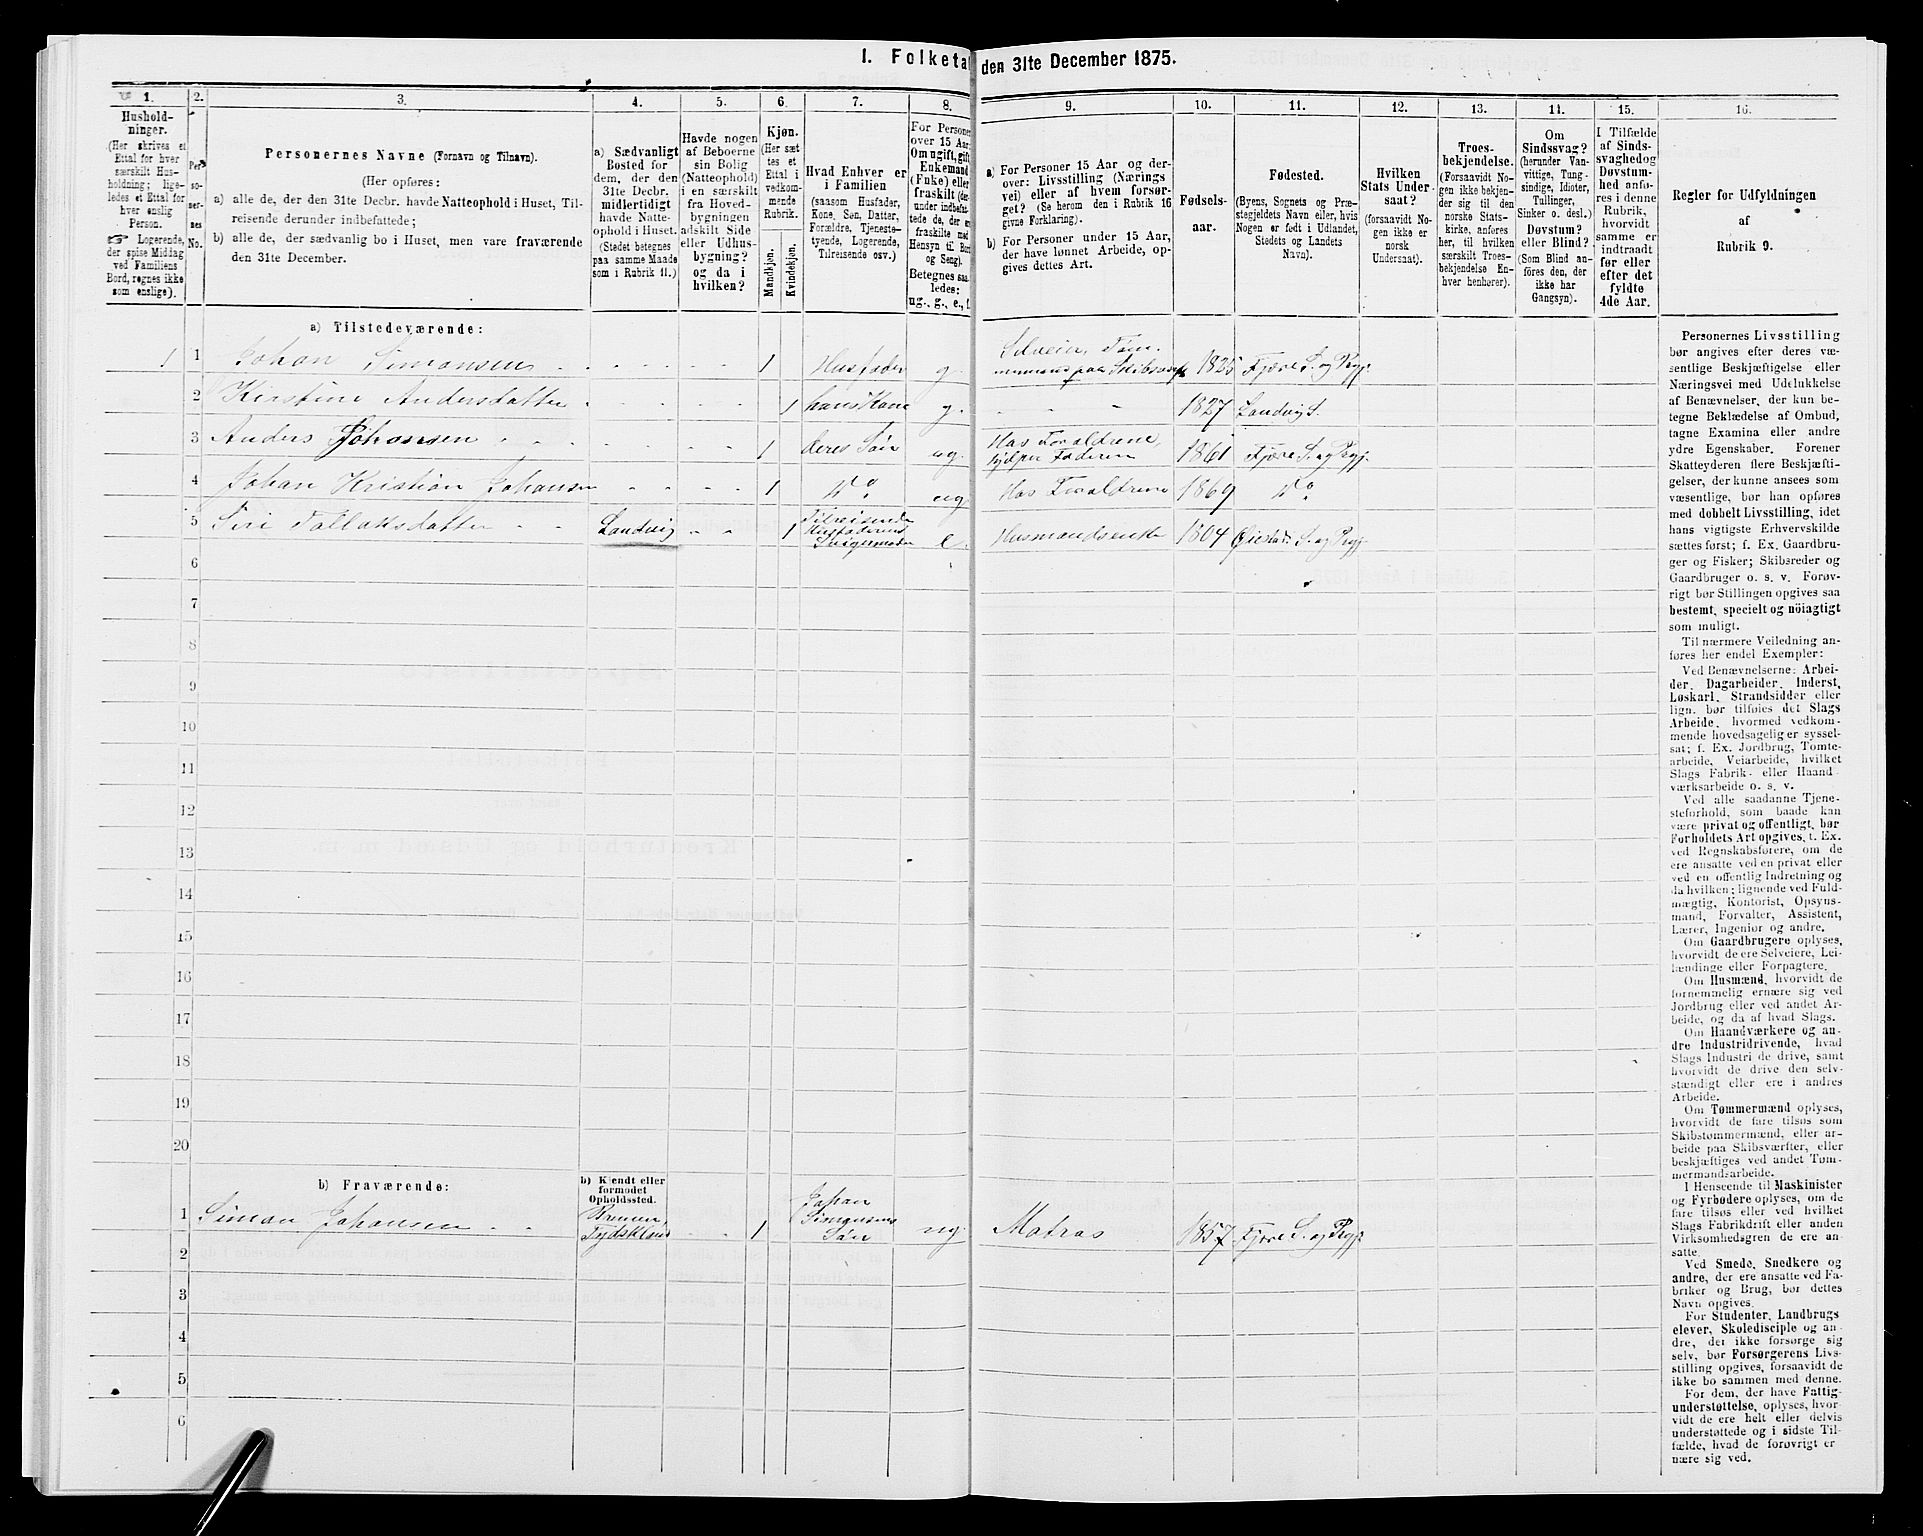 I. Folketal den 31te December 1875.
1. 2. 3. 4. 5. 6. 7. 8. 9. 10. 11. 12. 13. 14. 15. 16.
Hushold-
ninger.
(Her skrives et
Ettal for hver
særskilt Hus-
holdning; lige-
ledes et Ettal for
hver enslig
Person.
☞ Logerende,
der spise Middag
ved Familiens
Bord, regnes ikke
som enslige).
Per-
so-
ner-
nes
No.
Personernes Navne (Fornavn og Tilnavn).
(Her opføres:
a) alle de, der den 31te Decbr. havde Natteophold i Huset, Til-
reisende derunder indbefattede;
b) alle de, der sædvanlig bo i Huset, men vare fraværende
den 31te December.
a) Sædvanligt
Bosted for
dem, der den
31te Decbr.
midlertidigt
havde Natte-
ophold i Huset.
(Stedet betegnes
paa samme Maade
som i Rubrik 11.)
Havde nogen
af Beboerne
sin Bolig
(Natteophold)
i en særskilt
fra Hoved-
bygningen
adskilt Side
eller Udhus-
bygning?
og da i
hvilken?
Kjøn.
(Her sæt-
tes et
Ettal i
vedkom-
mende
Rubrik.
Mandkjøn.
Kvindekjøn.
Hvad Enhver er
i Familien
(saasom Husfader,
Kone, Søn, Datter,
Forældre, Tjeneste-
tyende, Logerende,
Tilreisende osv.)
For Personer
over 15 Aar:
Om ugift, gift,
Enkemand
(Enke) eller
fraskilt (der-
under indbefat-
tede de, der ere
fraskilte med
Hensyn til Bord
og Seng).
Betegnes saa-
ledes:
ug., g., e., f.
a) For Personer 15 Aar og der-
over: Livsstilling (Nærings-
vei) eller af hvem forsør-
get? (Se herom den i Rubrik 16
givne Forklaring).
b) For Personer under 15 Aar,
der have lønnet Arbeide, op-
gives dettes Art.
Fødsels-
aar.
Fødested.
(Byens, Sognets og Præ-
stegjeldets Navn eller, hvis
Nogen er født i Udlandet,
Stedets og Landets
Navn).
Hvilken
Stats Under-
saat?
(forsaavidt No-
gen ikke er
norsk
Undersaat).
Troes-
bekjendelse.
(Forsaavidt No-
gen ikke bekjen-
der sig til den
norske Stats-
kirke, anføres
her, til hvilken
særskilt Troes-
bekjendelse En-
hver henhører).
Om
Sindssvag?
(herunder Van-
vittige, Tung-
sindige, Idioter,
Tullinger,
Sinker o. desl.)
Døvstum?
eller Blind?
(Som Blind an-
føres den, der
ikke har
Gangsyn).
I Tilfælde
af Sinds-
svaghedog
Døvstum-
hed anfø-
res i denne
Rubrik,
hvorvidt
samme er
indtraadt
før eller
efter det
fyldte
4de Aar.
Regler for Udfyldningen
af
Rubrik 9.
a) Tilstedeværende:
1 1 Johan Simonsen 1 Husfader g. Selveier, Tøm-
mermand paa Skibsværft 1825 Fjære S. og Prgj.
2 Kirstine Andersdatter 1 hans Kone g. 1827 Landvig S.
3 Anders Johansen 1 deres Søn ug. Hos Forældrene,
hjelper Faderen 1861 Fjære S. og Prgj.
4 Johan Kristian Johansen 1 Do ug. Hos Forældrene 1869 Do
5 Siri Tallaksdatter Landvig 1 Tilreisende
Husfaderens
Svigermoder e. Husmandsenke 1804 Øiestad S. og Prgj.
6
7
8
9
10
11
12
13
14
15
16
17
18
19
20
b) Fraværende:
b) Kjendt eller
formodet
Opholdssted.
1 Simon Johansen Bremen,
Tydskland 1 Johan
Simonsens
Søn ug. Matros 1857 Fjære S. og Prgj.
2
3
4
5
6
Personernes Livsstilling
bør angives efter deres væ-
sentlige Beskjæftigelse eller
Næringsvei med Udelukkelse
af Benævnelser, der kun be-
tegne Beklædelse af Ombud,
tagne Examina eller andre
ydre Egenskaber. Forener
Skatteyderen flere Beskjæfti-
gelser, der kunne ansees som
væsentlige, bør han opføres
med dobbelt Livsstilling, idet
hans vigtigste Erhvervskilde
sættes først; f. Ex. Gaardbru-
ger og Fisker; Skibsreder og
Gaardbruger o. s. v. Forøv-
rigt bør Stillingen opgives saa
bestemt, specielt og nöiagtigt
som muligt.
Til nærmere Veiledning an-
føres her endel Exempler:
Ved Benævnelserne: Arbei-
der, Dagarbeider, Inderst,
Løskarl, Strandsidder eller
lign. bør tilføies det Slags
Arbeide, hvormed vedkom-
mende hovedsagelig er syssel-
sat; f. Ex. Jordbrug, Tomte-
arbeide, Veiarbeide, hvilket
Slags Fabrik- eller Haand-
værksarbeide o. s. v.
Ved alle saadanne Tjene-
steforhold, som baade kan
være privat og offentligt, bør
Forholdets Art opgives, t. Ex.
ved Regnskabsførere, om de
ere ansatte ved en privat eller
ved en offentlig Indretning og
da hvilken; lignende ved Fuld-
mægtig, Kontorist, Opsyns-
mand, Forvalter, Assistent,
Lærer, Ingeniør og andre.
Om Gaardbrugere oplyses,
hvorvidt de ere Selveiere, Lei-
lændinge eller Forpagtere.
Om Husmænd, hvorvidt de
fornemmelig ernære sig ved
Jordbrug eller ved andet Ar-
beide, og da af hvad Slags.
Om Haandværkere og an-
dre Industridrivende, hvad
Slags Industri de drive, samt
hvorvidt de drive den selv-
stændigt eller ere i andres
Arbeide.
Om Tømmermænd oplyses,
hvorvidt de fare tilsøs som
Skibstømmermænd, eller ar-
beide paa Skibsværfter, eller
beskjæftiges ved andet Tøm-
mermandsarbeide.
I Henseende til Maskinister
og Fyrbødere oplyses, om de
fare tilsøs eller ved hvilket
Slags Fabrikdrift eller anden
Virksomhedsgren de ere an-
satte.
Ved Smede, Snedkere og
andre, der ere ansatte ved Fa-
briker og Brug, bør dettes
Navn opgives.
For Studenter, Landbrugs-
elever, Skoledisciple og an-
dre, der ikke forsørge sig
selv, bør Forsørgerens Livs-
stilling opgives, forsaavidt de
ikke bo sammen med denne.
For dem, der have Fattig-
understøttelse, oplyses, hvor-
vidt de ere helt eller delvis
understøttede og i sidste Til-
fælde, hvad de forøvrigt er-
nære sig ved.